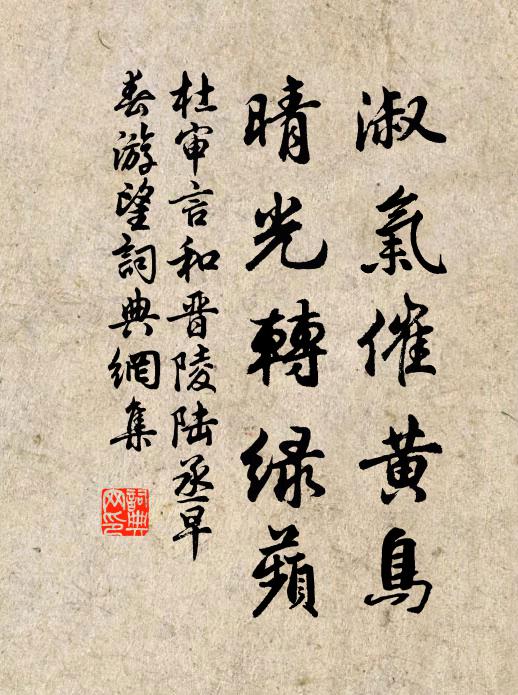 淑氣催黄鳥
晴光轉緑蘋
杜审言和晋陵陆丞早
春游望詞典網集
詞典网印